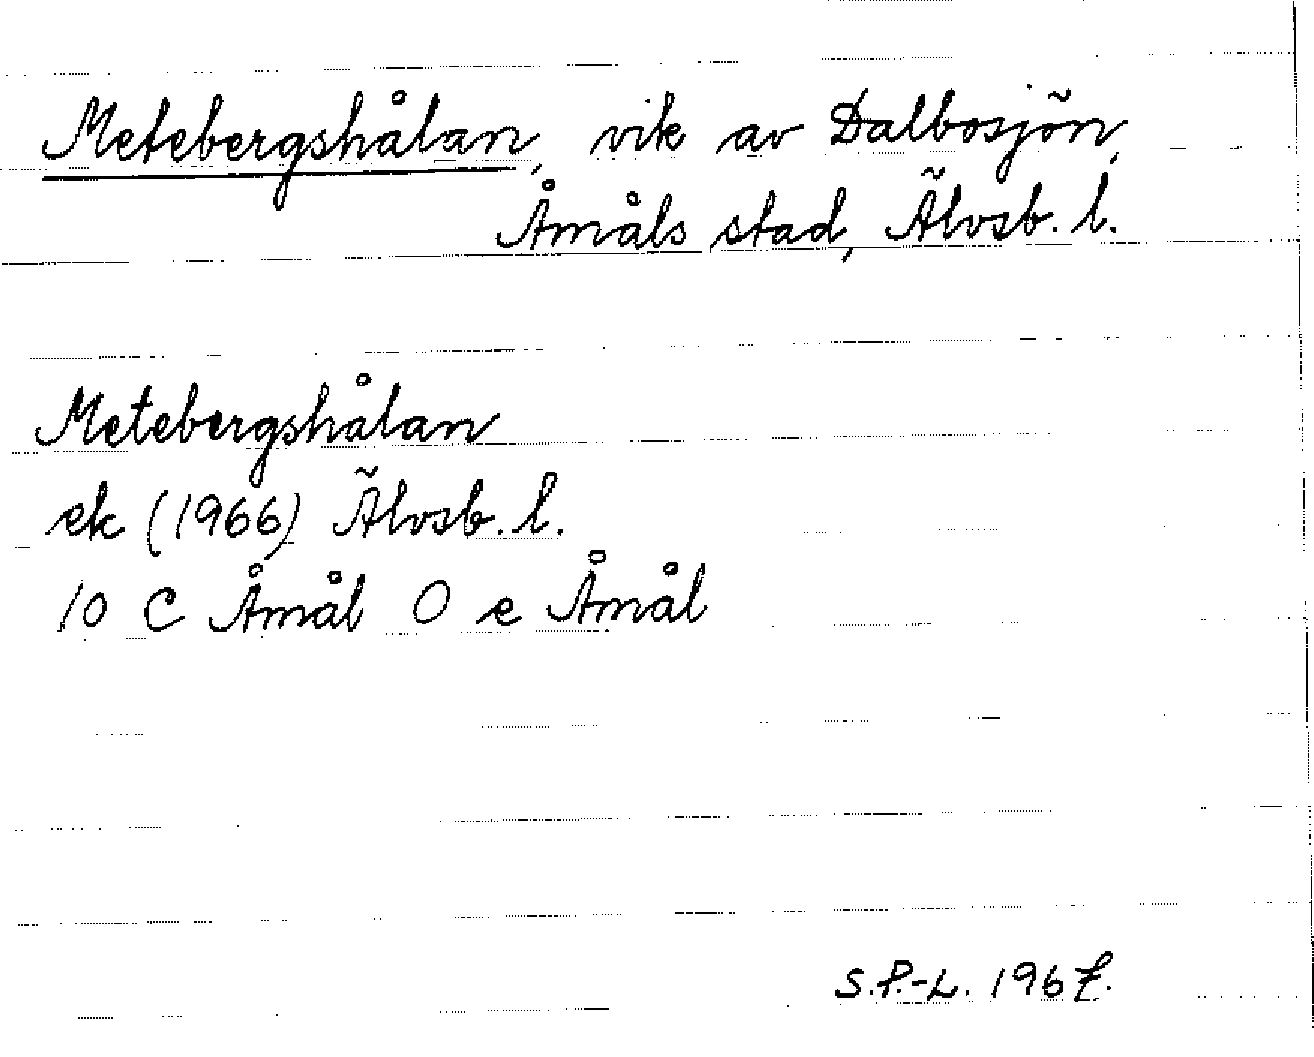 Metebergshålan, vik av Dalbosjön,
Åmåls stad, Älvsb. l.
Metebergshålan
ek (1966) Älvsb. l.
10 C Åmål O e Åmål
S.P.-L. 1967.